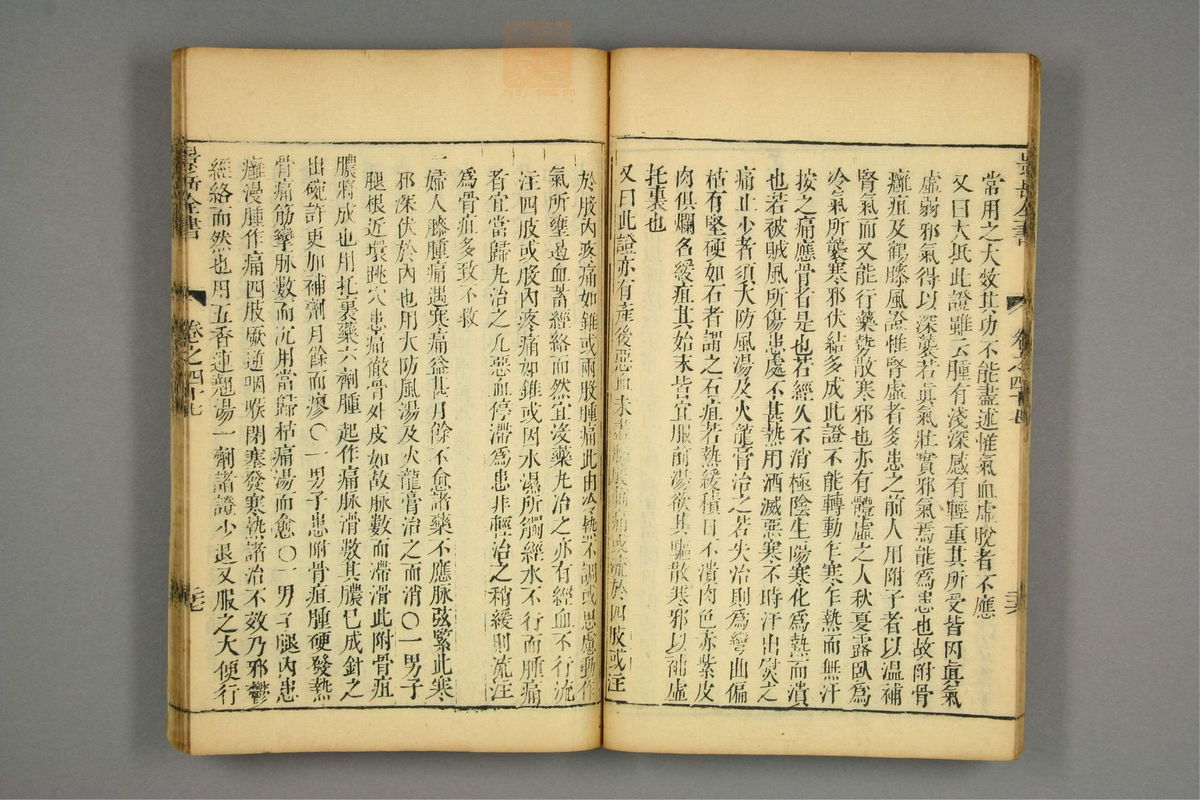 常用之大效其功不能盡述惟氣血虛脫者不應
又曰大抵此證雖云腫有淺深感有輕重其所受皆因眞氣
虛弱邪氣得以深襲若眞氣壯實邪氣焉能爲患也故附骨
癰疽及鶴膝風證惟腎虛者多患之前人用附子者以温補
腎氣而又能行藥勢散寒邪也亦有體虛之人秋夏露臥爲
冷氣所襲寒邪伏結多成此證不能轉動乍寒乍熱而無汗
按之痛應骨者是也若經久不消極陰生陽寒化爲熱而潰
也若被賊風所傷患處不甚熱用洒滅惡寒不時汗出熨之
痛止少者須大防風湯及火龍膏治之若失治則爲彎曲偏
枯有堅硬如石者謂之石疽若熱緩積日不潰肉色赤紫皮
肉俱爛名緩疽其始末皆宜服前湯欲其驅散寒邪以補虛
托裏也
又曰此證亦有產後惡血未盡於四肢或注
於股內疼痛如錐或兩股腫痛此由冷熱不調或思慮動作
氣所壅遏血蓄經絡而然宜沒藥丸治之亦有經血不行流
注四肢或股內疼痛如錐或因水濕所觸經水不行而腫痛
者宜當歸丸治之凢惡血停滯爲患非輕治之稍緩則流注
爲骨疽多致不救
一婦人膝腫痛遇寒痛益甚月餘不愈諸藥不應脉弦緊此寒
邪深伏於內也用大防風湯及火龍膏治之而消〇一男子
腿根近環跳穴患痛徹骨外皮如故脉數而滯滑此附骨疽
膿將成也用托裏藥六劑腫起作痛脉滑數其膿已成針之
出碗許更加補劑月餘而瘳〇一男子患附骨疽腫硬發熱
骨痛筋攣脉數而沉用當歸枯痛湯而愈〇一男子腿內患
癰漫腫作痛四肢厥逆咽喉閉塞發寒熱諸治不效乃邪鬱
經絡而然也用五香連翹湯一劑諸證少退又服之大便行
景岳全書
卷之四十七